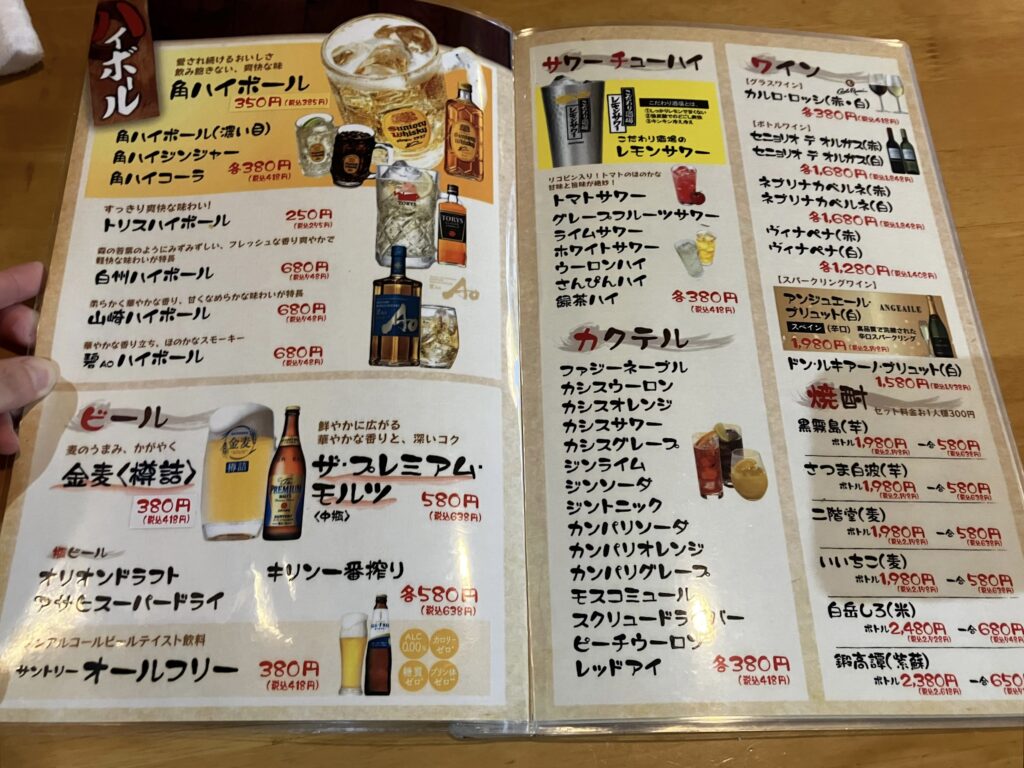 ハイボール
愛され続けるおいしさ
飲み飽きない、爽快な味
角ハイボール
350円(税込385円)
角ハイボール(濃い目)
角ハイジンジャー
角ハイコーラ
各380円
(税込418円)
すっきり爽快な味わい!
トリスハイボール
250円
(税込275円)
森の若葉のようにみずみずしい、フレッシュな香り爽やかで
軽快な味わいが特長
白州ハイボール
680円
(税込748円)
柔らかく華やかな香り、甘くなめらかな味わいが特長
山崎ハイボール
680円
(税込748円)
華やかな香り立ち、ほのかなスモーキー
碧Aoハイボール
680円
(税込748円)
Suntory
Whisky
TORYS
Ao
ビール
麦のうまみ、かがやく
金麦〈樽詰〉
380円
(税込418円)
金麦
樽詰
鮮やかに広がる
華やかな香りと、深いコク
ザ・プレミアム・
モルツ
〈中瓶〉
580円
(税込638円)
瓶ビール
オリオンドラフト
アサヒスーパードライ
キリン一番搾り
各580円
(税込638円)
ノンアルコールビールテイスト飲料
サントリー オールフリー
380円
(税込418円)
ALC
0.00%
カロリー
ゼロ
糖質
ゼロ
プリン体
ゼロ
サワー チューハイ
こだわり酒場の
レモンサワー
トマトサワー
リコピン入り!トマトのほのかな
甘味と旨味が絶妙!
グレープフルーツサワー
ライムサワー
ホワイトサワー
ウーロンハイ
さんぴんハイ
緑茶ハイ
各380円
(税込418円)
カクテル
ファジーネーブル
カシスウーロン
カシスオレンジ
カシスサワー
カシスグレープ
ジンライム
ジンソーダ
ジントニック
カンパリソーダ
カンパリオレンジ
カンパリグレープ
モスコミュール
スクリュードライバー
ピーチウーロン
レッドアイ
各380円
(税込418円)
ワイン
[グラスワイン]
カルロ・ロッシ(赤・白)
各380円(税込418円)
[ボトルワイン]
セニョリオ デ オルガス(赤)
セニョリオ デ オルガス(白)
各1,680円(税込1,848円)
ネブリナカベルネ(赤)
ネブリナカベルネ(白)
各1,680円(税込1,848円)
ヴィナペナ(赤)
ヴィナペナ(白)
各1,280円(税込1,408円)
[スパークリングワイン]
アンジュエール
ブリュット(白)
ANGEAILE
スペイン (辛口)
高品質で洗練された
辛口スパークリング
1,980円(税込2,178円)
ドン・ルキアーノ・ブリュット(白)
1,580円(税込1,738円)
焼酎
セット料金お1人様300円
黒霧島(芋)
ボトル1,980円 一合580円
(税込2,178円) (税込638円)
さつま白波(芋)
ボトル1,980円 一合580円
(税込2,178円) (税込638円)
二階堂(麦)
ボトル1,980円 一合580円
(税込2,178円) (税込638円)
いいちこ(麦)
ボトル1,980円 一合580円
(税込2,178円) (税込638円)
白岳しろ(米)
ボトル2,480円 一合680円
(税込2,728円)
鍛高譚(紫蘇)
ボトル2,380円 一合650
(税込2,618円)